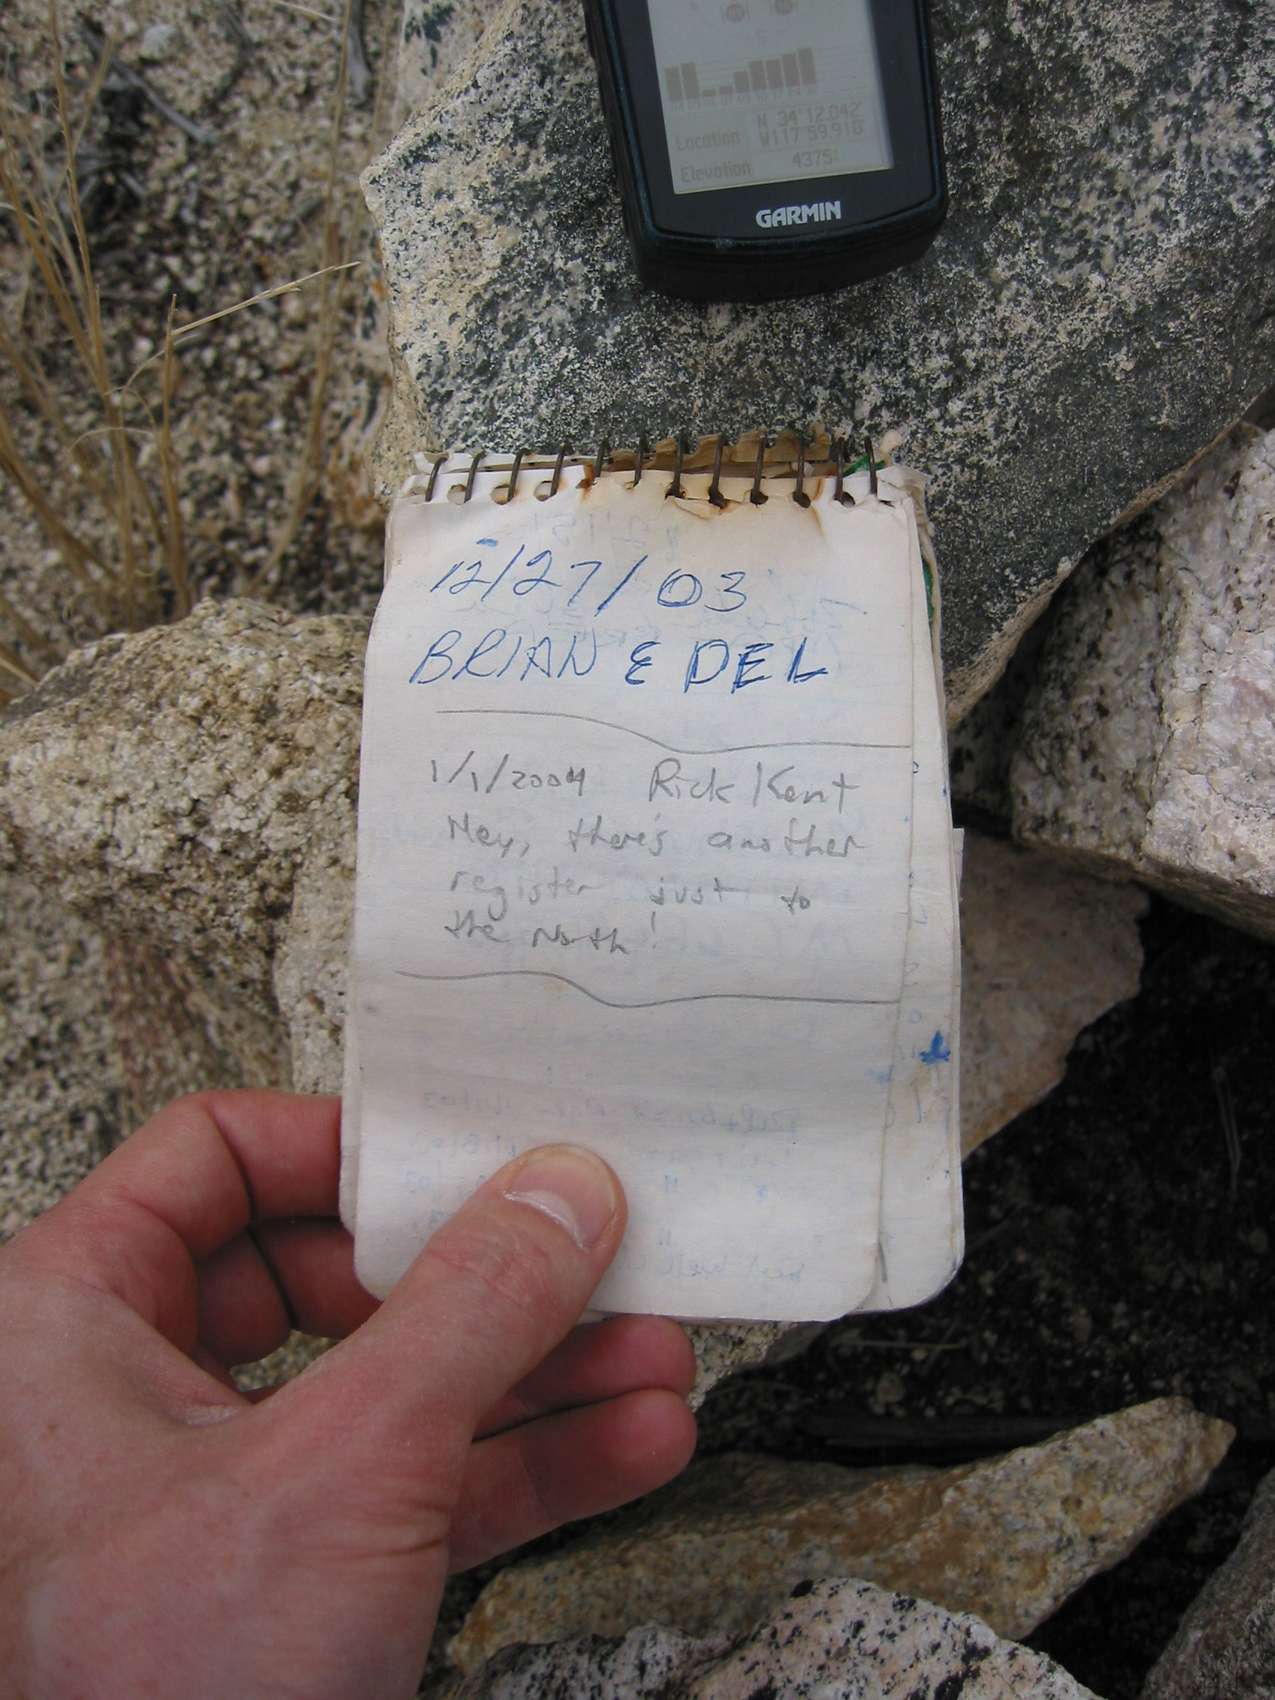 Location
N 34°12.042'
W117°59.918'
Elevation
4375'
GARMIN
12/27/03
BRIAN & DEL
1/1/2004 Rick Kent
Hey, there's another
register just to
the North!